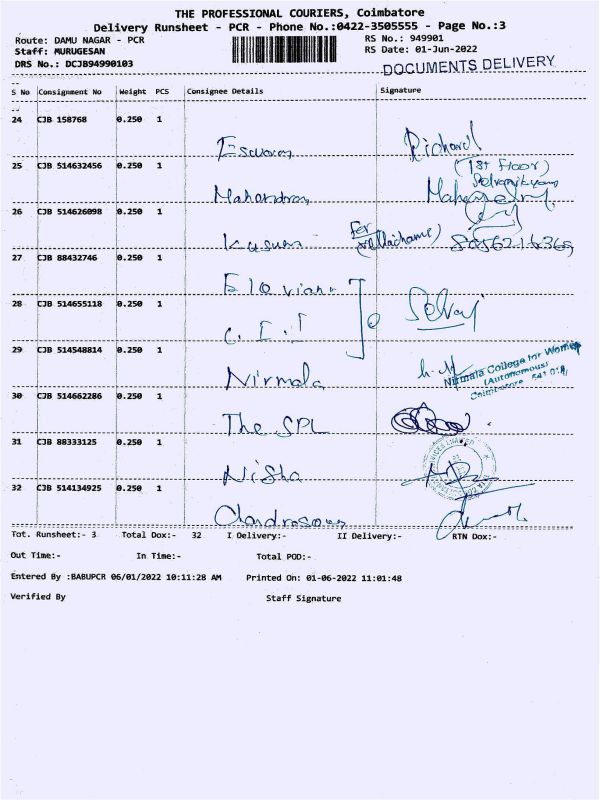 THE PROFESSIONAL COURIERS, Coimbatore
Delivery Runsheet - PCR - Phone No.:0422-3505555 - Page No.:3
Route: DAMU NAGAR - PCR RS No.: 949901
Staff: MURUGESAN RS Date: 01-Jun-2022
DRS No.: DCJB94990103 DOCUMENTS DELIVERY
S No Consignment No Weight PCS Consignee Details Signature
24 CJB 158768 0.250 1
Eswaran Richard
(1st Floor)
25 CJB 514632456 0.250 1
Mahendran
26 CJB 514626098 0.250 1
Kusum For
27 CJB 88432746 0.250 1
28 CJB 514655118 0.250 1
C.I.I
29 CJB 514548814 0.250 1
Nirmala Nirmala College for Women
(Autonomous)
Coimbatore
30 CJB 514662286 0.250 1
The SPL
31 CJB 88333125 0.250 1
Nisha
32 CJB 514134925 0.250 1
Tot. Runsheet:- 3 Total Dox:- 32 I Delivery:- II Delivery:- RTN Dox:-
Out Time:- In Time:- Total POD:-
Entered By :BABUPCR 06/01/2022 10:11:28 AM Printed On: 01-06-2022 11:01:48
Verified By Staff Signature